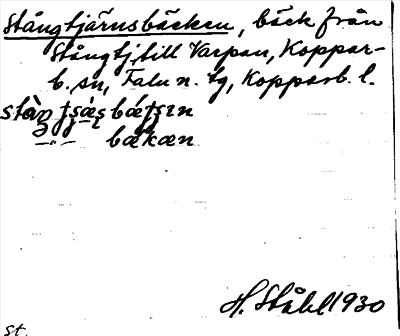 Stångtjärnsbäcken, bäck från
Stångtj. till Varpan, Koppar-
b. sn, Falu n. tg, Kopparb. l.
bækæn
H. Ståhl 1930
st.